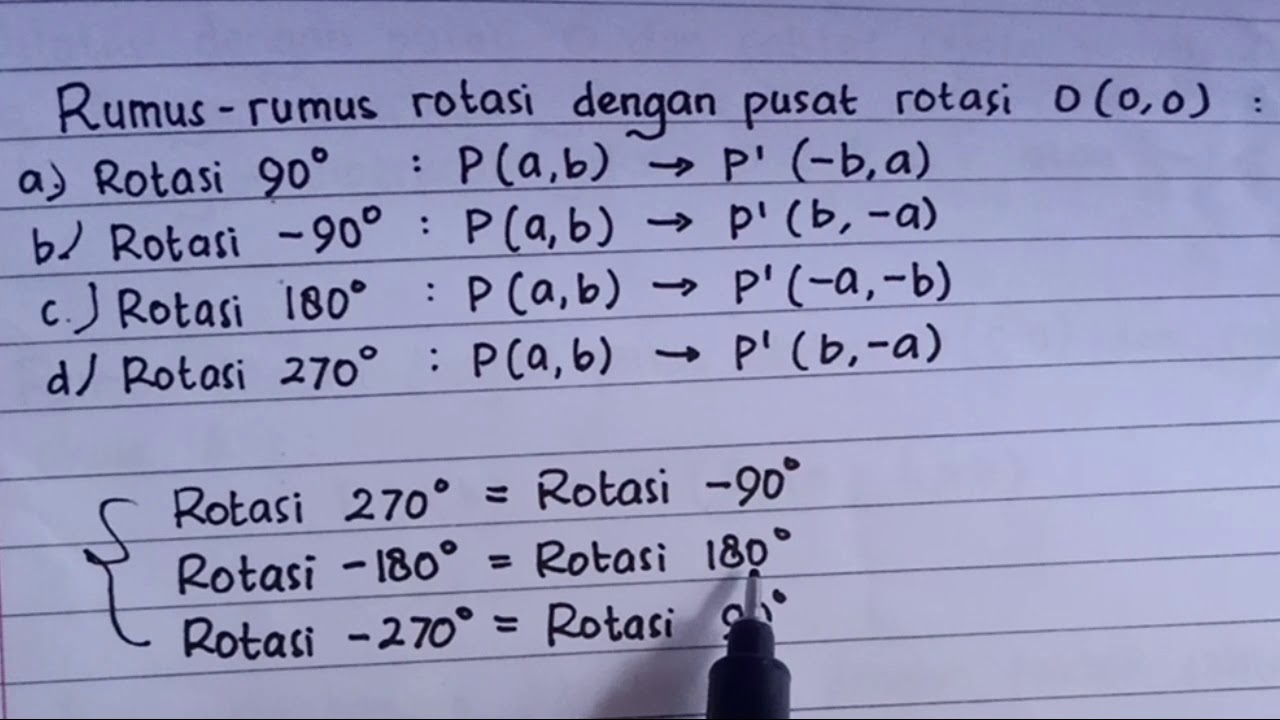 Rumus-rumus rotasi dengan pusat rotasi O(0,0) :
a) Rotasi 90° : P(a,b) → P'(-b,a)
b) Rotasi -90° : P(a,b) → P'(b,-a)
c.) Rotasi 180° : P(a,b) → P'(-a,-b)
d) Rotasi 270° : P(a,b) → P'(b,-a)
Rotasi 270° = Rotasi -90°
Rotasi -180° = Rotasi 180°
Rotasi -270° = Rotasi 90°